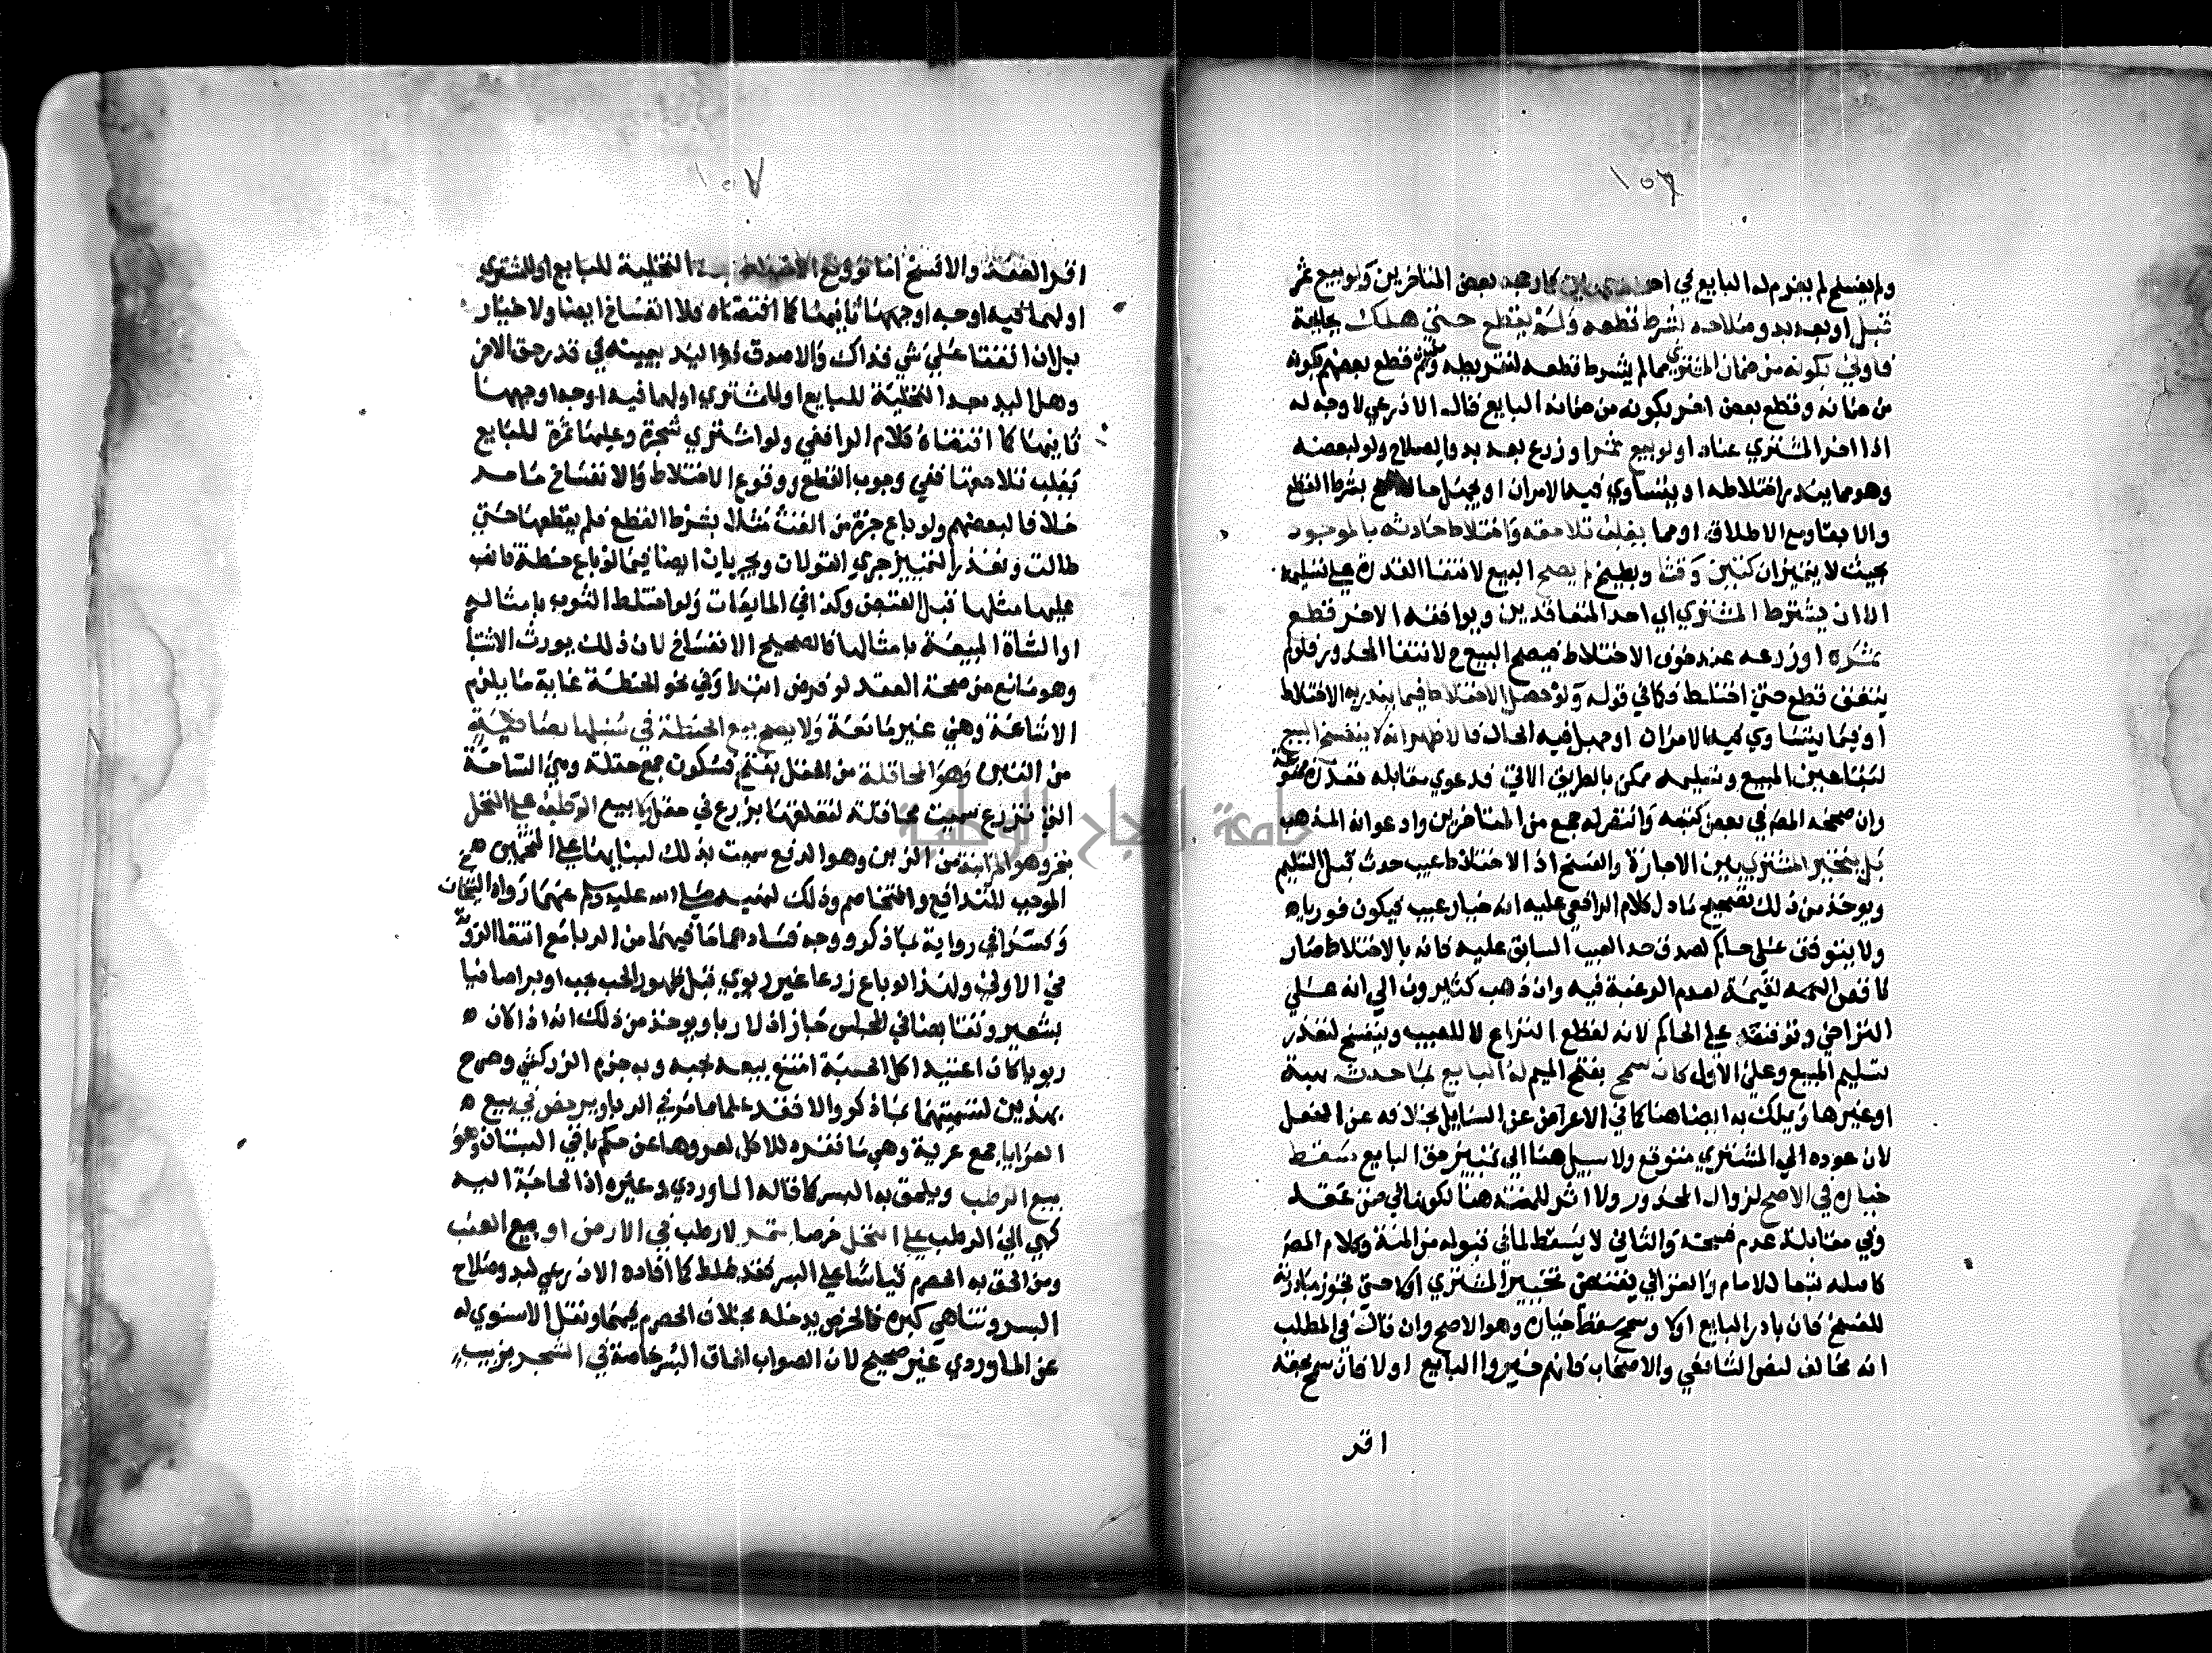 ١٥٦
ولم يفسخ لم يغرم له البايع في احد وجهين كما رجحه بعض المتاخرين ولو بيع ثمر
قبل او بعد بدو صلاحه بشرط قطعه ولم يقطع حتى هلك بجايحة
فاولى بكونه من ضمان المشتري مما لم يشرط قطعه لتفريطه ومن ثم قطع بعضهم بكونه
من ضمانه وقطع بعض اخر بكونه من ضمانه البايع قال الاذرعي لا وجه له
اذا اخر المشتري عنادا ولو بيع ثمر او زرع بعد بدو الصلاح ولو لبعضه
وهو مما يندر اختلاطه او يتساوي فيه الامران او يجهل حاله صح بشرط القطع
والابقا ومع الاطلاق او مما يغلب تلاحقه واختلاط حادثه بالموجود
بحيث لا يتميزان كتين وقثا وبطيخ لم يصح البيع لانتفا القدرة على تسليمه
الا ان يشترط المشتري اي احد المتعاقدين ويوافقه الاخر قطع
ثمره او زرعه عند خوف الاختلاط فيصح البيع ح لانتفا المحذور فلو لم
يتفق قطع حتى اختلط فكما في قوله ولو حصل الاختلاط فيما يندر به الاختلاط
او فيما يتساوي فيه الامران او جهل فيه الحال فالاظهر انه لا ينفسخ البيع
لبقا عين المبيع وتسليمه ممكن بالطريق الاتي فدعوي مقابله تعذره ممنوعة
وان صححه المص في بعض كتبه وانتقر له جمع من المتاخرين وادعوا انه المذهب
بل يتخير المشتري بين الاجازة والفسخ اذ الاختلاط عيب حدث قبل التسليم
ويوخذ من ذلك تصحيح مادل كلام الرافعي عليه انه خيار عيب فيكون فوريا ه
ولا يتوقف على حاكم لصدق حد العيب السابق عليه فانه بالاختلاط صار
ناقص القيمة لعدم الرغبة فيه وان ذهب كثيرون الي انه على
التراخي وتوقفه على الحاكم لانه لقطع النزاع لا للعيب ويفسخ لتعذر
تسليم المبيع وعلى الاول كان سمح بفتح الميم له البايع بما حدث بهبة
او غيرها ويملك به ايضا هنا كما في الاعراض عن السنابل بخلافه عن النعل
لان عوده الي المشتري متوقع ولا سبيل هنا الي تمييز حق البايع سقط
خياره في الاصح لزوال المحذور ولا اثر للمنة هنا لكونها في ضمن عقد
وفي مقابلة عدم فسخه والثاني لا يسقط لما في قبوله من المنة وكلام المص
كاصله تبعا للامام والغزالي يقتضي تخيير المشتري اولا حتى تجوز مبادرته
للفسخ فان بادر البايع اولا وسمح سقط خياره وهو الاصح وان قال في المطلب
انه مخالف لنص الشافعي والاصحاب فانهم خيروا البايع اولا فان سمح بحقه
اقر
١٥٧
اقر العقد والا فسخ اما لو وقع الاختلاط بعد التخلية للبايع او للمشتري
او لهما فيه اوجه اوجهها ثانيها كما اقتضاه فلا انفساخ ايضا ولا خيار
بل ان اتفقا على شي فذاك والا صدق ذو اليد بيمينه في قدر حق الاخر
وهل اليد بعد التخلية للبايع او للمشتري او لهما فيه اوجه اوجهها
ثانيها كما اقتضاه كلام الرافعي ولو اشتري شجرة وعليها ثمرة للبايع
يغلب تلاحقها ففي وجوب القطع ووقوع الاختلاط والانفساخ ما مر
خلافا لبعضهم ولو باع جزة من القت مثلا بشرط القطع فلم يقطعها حتى
طالت وتعذر التمييز جري القولان ويجريان ايضا فيما لو باع حنطة فانصب
عليها مثلها قبل القبض وكذا في المايعات ولو اختلط الثوب بامثاله
او الشاة المبيعة بامثالها فالصحيح الانفساخ لان ذلك يورث الاشتباه
وهو مانع من صحة العقد لو فرض ابتدا وفي نحو الحنطة غاية ما يلزم
الاشاعة وهي غير مانعة ولا يصح بيع الحنطة في سنبلها بصافية
من التبن وهو المحاقلة من الحقل بفتح فسكون جمع حقلة وهي الساحة
التي تزرع سميت محاقلة لتعلقها بزرع في حقل ولا بيع الرطب على النخل
بتمر وهو المزابنة من الزبن وهو الدفع سميت بذلك لبنايها على التخمين ه
الموجب للتدافع والتخاصم وذلك لنهيه صلى الله عليه وسلم عنهما رواه الشيخان
وفسرا في رواية بما ذكر ووجه فسادهما ما فيهما من الربا مع انتفا الروية
في الاولى ولهذا لو باع زرعا غير ربوي قبل ظهور الحب بحب او برا صافيا
بشعير وتقابضا في المجلس جاز اذ لا ربا ويوخذ من ذلك انه اذا كان ه
ربويا كان اعتيد اكل الحلبة امتنع بيعه بحبه وبه جزم الزركشي وصرح
بهذين لتسميتهما بما ذكر والا فقد علما مما مر في الربا ويرخص في بيع ه
العرايا جمع عرية وهي ما تفرده للاكل لعروها عن حكم باقي البستان وهو
بيع الرطب ويلحق به البسر كما قاله الماوردي وغيره اذ الحاجة اليه
كهي الى الرطب على النخل خرصا بتمر لا رطب في الارض او بيع العنب
ومن الحق به الحصرم قياسا على البسر فقد غلط كما افاده الاذرعي لبدو صلاح
البسر وتناهي كبره فالخرص يدخله بخلاف الحصرم فيهما ونقل الاسنوي له
عن الماوردي غير صحيح لان الصواب الحاق البسر خاصة في الشجر بزبيب